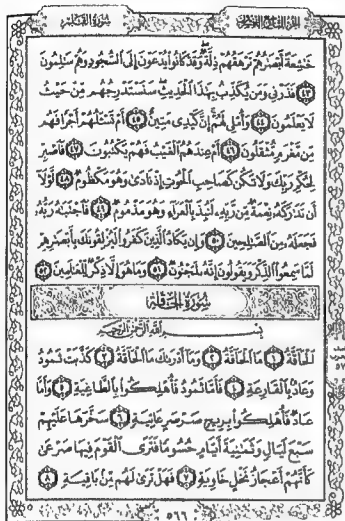 الجزء التاسع والعشرون سورة القلم
خَاشِعَةً أَبْصَارُهُمْ تَرْهَقُهُمْ ذِلَّةٌ وَقَدْ كَانُوا يُدْعَوْنَ إِلَى السُّجُودِ وَهُمْ سَالِمُونَ
٤٣ فَذَرْنِي وَمَن يُكَذِّبُ بِهَٰذَا الْحَدِيثِ سَنَسْتَدْرِجُهُم مِّنْ حَيْثُ
لَا يَعْلَمُونَ ٤٤ وَأُمْلِي لَهُمْ إِنَّ كَيْدِي مَتِينٌ ٤٥ أَمْ تَسْأَلُهُمْ أَجْرًا فَهُم
مِّن مَّغْرَمٍ مُّثْقَلُونَ ٤٦ أَمْ عِندَهُمُ الْغَيْبُ فَهُمْ يَكْتُبُونَ ٤٧ فَاصْبِرْ
لِحُكْمِ رَبِّكَ وَلَا تَكُن كَصَاحِبِ الْحُوتِ إِذْ نَادَىٰ وَهُوَ مَكْظُومٌ ٤٨ لَّوْلَا
أَن تَدَارَكَهُ نِعْمَةٌ مِّن رَّبِّهِ لَنُبِذَ بِالْعَرَاءِ وَهُوَ مَذْمُومٌ ٤٩ فَاجْتَبَاهُ رَبُّهُ
فَجَعَلَهُ مِنَ الصَّالِحِينَ ٥٠ وَإِن يَكَادُ الَّذِينَ كَفَرُوا لَيُزْلِقُونَكَ بِأَبْصَارِهِمْ
لَمَّا سَمِعُوا الذِّكْرَ وَيَقُولُونَ إِنَّهُ لَمَجْنُونٌ ٥١ وَمَا هُوَ إِلَّا ذِكْرٌ لِّلْعَالَمِينَ ٥٢
سورة الحاقة
بِسْمِ اللَّهِ الرَّحْمَٰنِ الرَّحِيمِ
الْحَاقَّةُ ١ مَا الْحَاقَّةُ ٢ وَمَا أَدْرَاكَ مَا الْحَاقَّةُ ٣ كَذَّبَتْ ثَمُودُ
وَعَادٌ بِالْقَارِعَةِ ٤ فَأَمَّا ثَمُودُ فَأُهْلِكُوا بِالطَّاغِيَةِ ٥ وَأَمَّا
عَادٌ فَأُهْلِكُوا بِرِيحٍ صَرْصَرٍ عَاتِيَةٍ ٦ سَخَّرَهَا عَلَيْهِمْ
سَبْعَ لَيَالٍ وَثَمَانِيَةَ أَيَّامٍ حُسُومًا فَتَرَى الْقَوْمَ فِيهَا صَرْعَىٰ
كَأَنَّهُمْ أَعْجَازُ نَخْلٍ خَاوِيَةٍ ٧ فَهَلْ تَرَىٰ لَهُم مِّن بَاقِيَةٍ ٨
٥٦٦